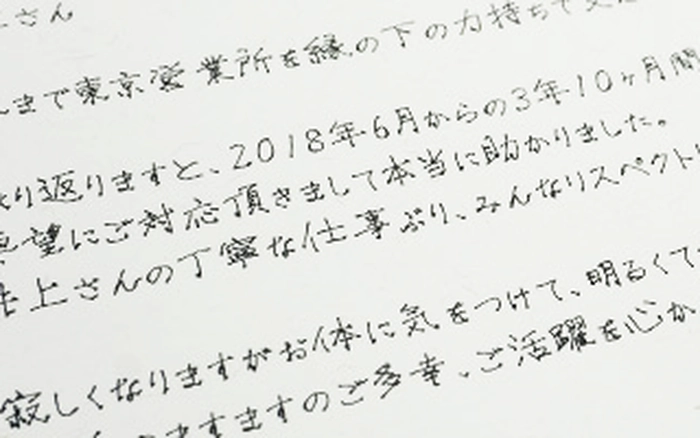 さん
まで東京営業所を縁の下の力持ちで支
り返りますと、2018年6月からの3年10ヶ月間
望にご対応頂きまして本当に助かりました。
上さんの丁寧な仕事ぶり、みんなリスペクト
寂しくなりますがお体に気をつけて、明るくて
ますますのご多幸、ご活躍を心か